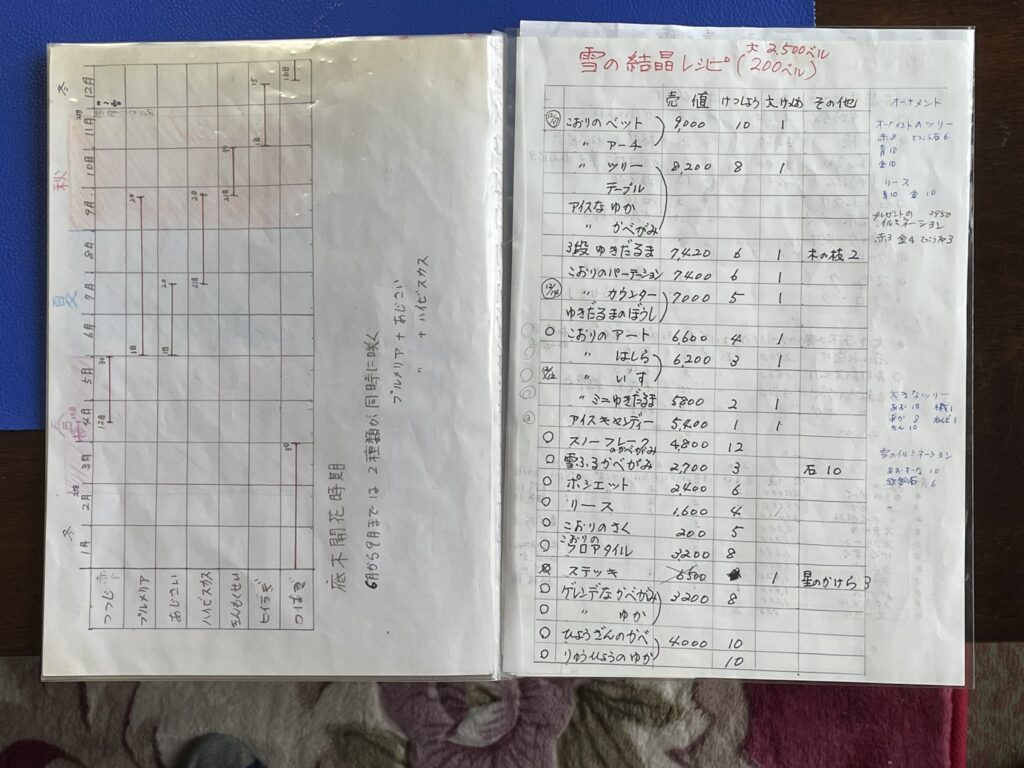 冬
12月
11月
10月
秋
9月
8月
夏
7月
6月
5月
4月
3月
2月
冬
1月
つつじ 赤
プルメリア
あじさい
ハイビスカス
きんもくせい
ヒイラギ
つばき
12日
30
1日
20
1日
20
21日
20
21日
30
1日
15
16日
30
底木開花時期
6月から9月までは2種類が同時に咲く
プルメリア + あじさい
〃 + ハイビスカス
雪の結晶レシピ (大 2,500ベル
200ベル)
売値 けっしょう 大けっしょう その他
こおりのベット 9,000 10 1
〃 アーチ
〃 ツリー 8,200 8 1
テーブル
アイスなゆか
〃 かべがみ
3段ゆきだるま 7,420 6 1 木の枝2
こおりのパーテーション 7400 6 1
12/14 〃 カウンター 7000 5 1
ゆきだるまのぼうし
○ こおりのアート 6600 4 1
〃 はしら 6,200 3 1
〃 いす
〃 ミニゆきだるま 5800 2 1
アイスキャンディー 5,400 1 1
○ スノーフレークのかべがみ 4,800 12
○ 雪ふるかべがみ 2,700 3 石10
○ ポシェット 2,400 6
○ リース 1,600 4
○ こおりのさく 200 5
○ こおりのフロアタイル 3200 8
ステッキ 5500 1 星のかけら3
○ ゲレンデなかべがみ 3200 8
○ 〃 ゆか
○ ひょうざんのかべ 4000 10
○ りゅうひょうのゆか 10
オーナメント
オーナメントのツリー
赤8 てっこう石6
青10
金10
リース
青10 金10
プレゼントの 2950
イルミネーション
赤3 金4 てっこう石3
大きなツリー
あお 10
あか 8
きん 10
雪のイルミネーション
あおオーナ 10
鉄鉱石 6